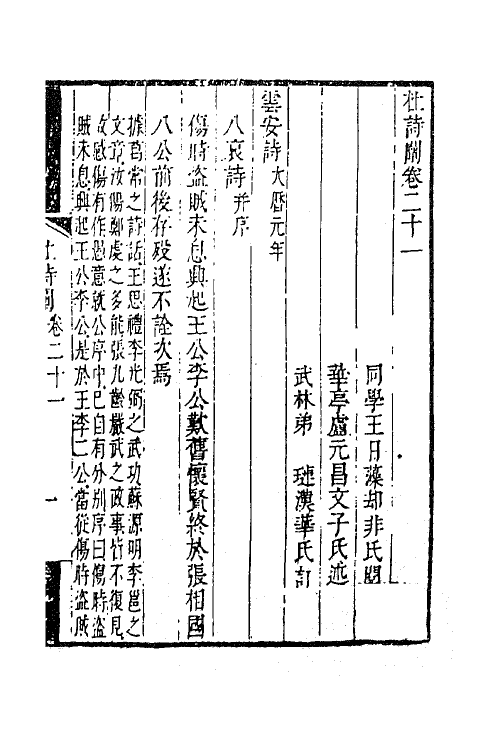 杜詩闡卷二十一
同學王日藻却非氏閱
華亭盧元昌文子氏述
武林弟 璉漢華氏訂
雲安詩大曆元年
八哀詩并序
傷時盜賊未息興起王公李公歎舊懷賢終於張相國
八公前後存歿遂不詮次焉
據葛常之詩話王思禮李光弼之武功蘇源明李邕之
文章汝陽鄭虔之多能張九齡嚴武之政事皆不復見
故感傷有作愚意就公序中已自有分別序曰傷時盜
賊未息興起王公李公是於王李二公當從傷時盜賊
杜詩闡 卷二十一 一